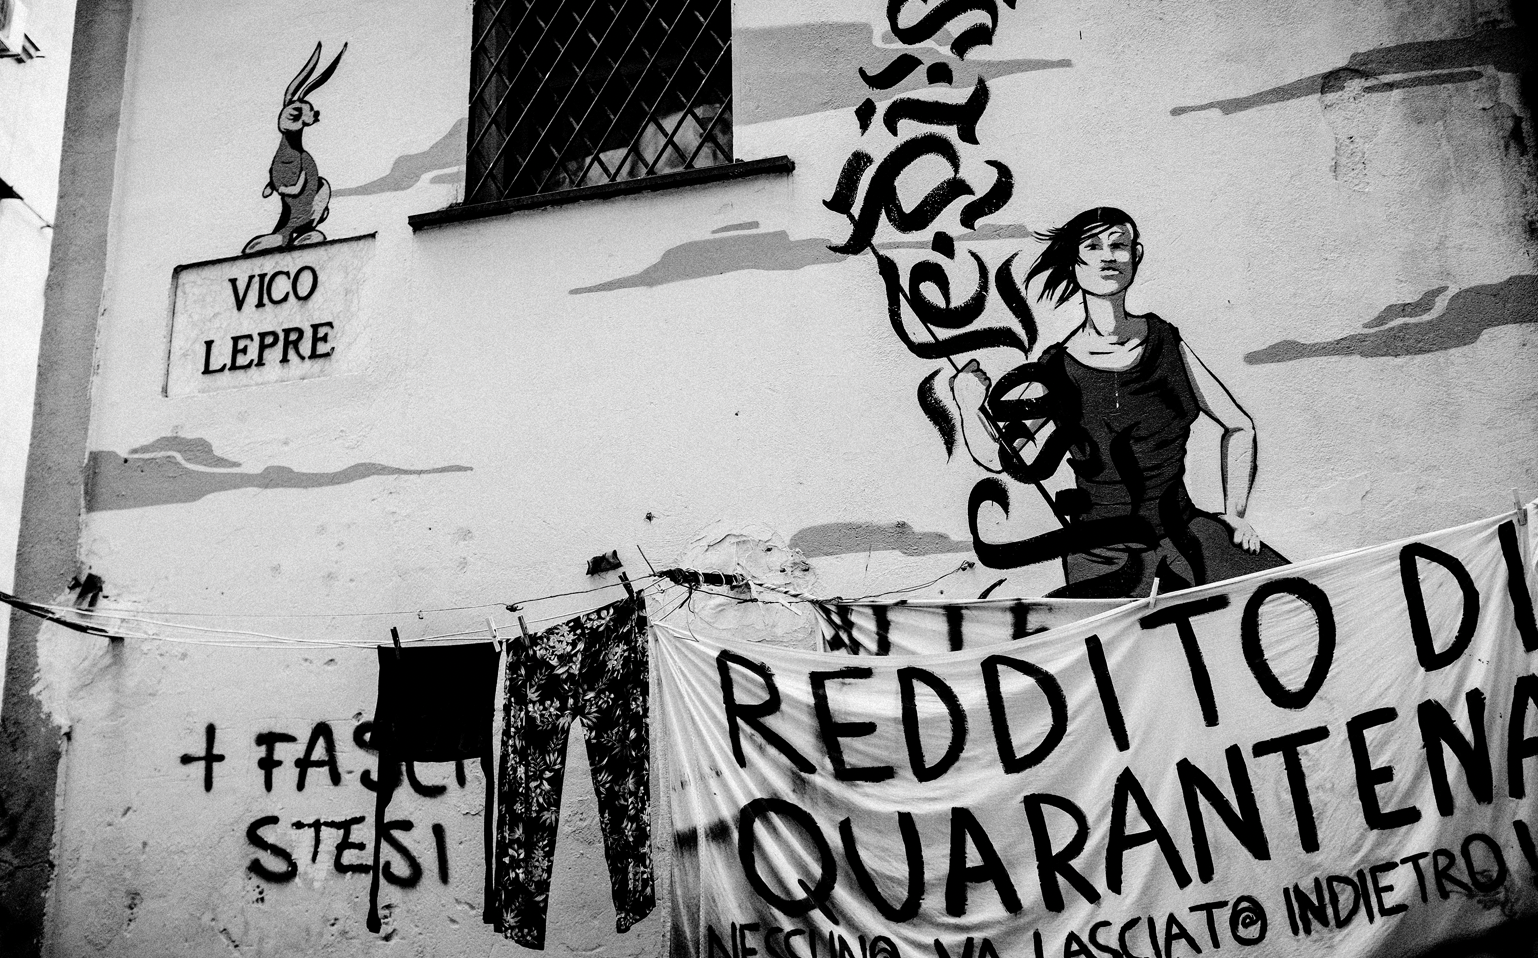 VICO
LEPRE
+ FASCI
STESI
REDDITO DI
QUARANTENA
NESSUNO VA LASCIATO INDIETRO